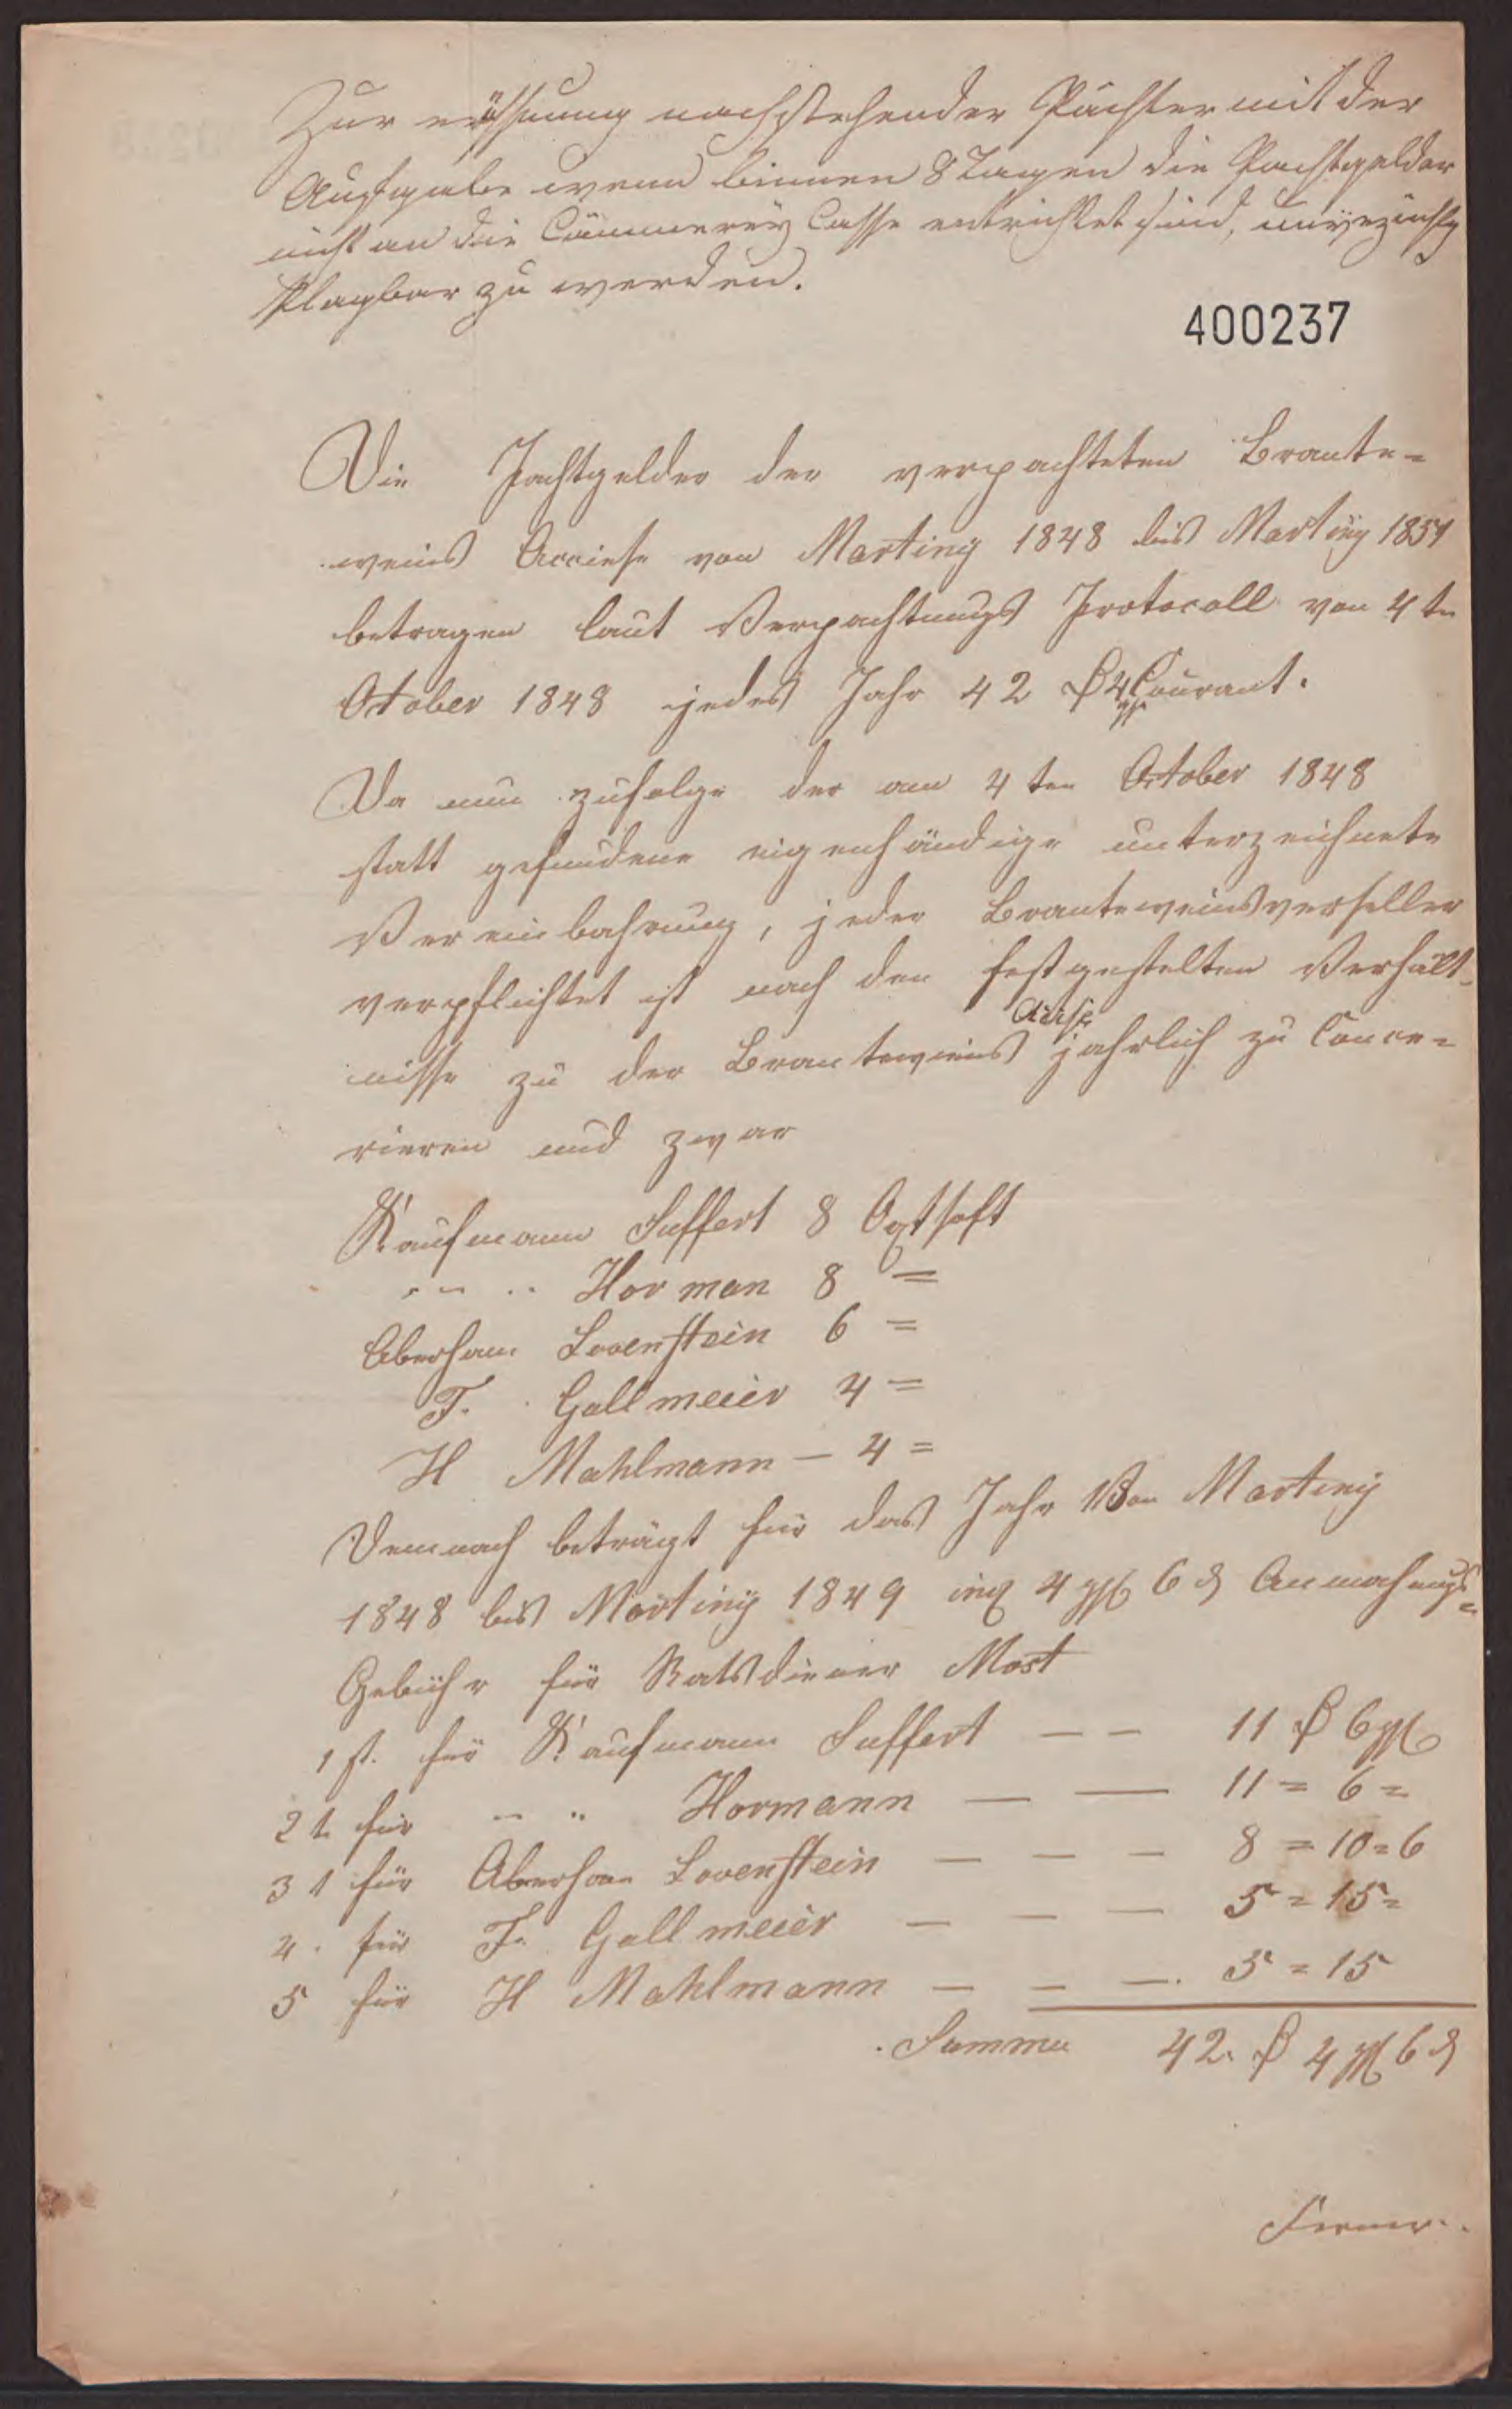 Zur eröffnung nachstehender Pächter mit der
Aufgabe wenn binnen 8 Tagen die Pachtgelder
nicht an die Cämmerey Casse entrichtet sind,
klagbar zu werden.
400237
Die Pachtgelder der verpachteten Brante-
weins Acciese von Martiny 1848 bis Martiny 1851
betragen laut Verpachtungs Protocoll von 4ten
October 1848 jedes Jahr 42 Courant.
Da nun zufolge der am 4ten October 1848
statt gefundene eigenhändige unterzeichnete
Vereinbahrung, jeder Branteweins
verpflichtet ist nach den festgestelten Verhält-
Acise
nisse zu der Branteweins jahrlich zu Concu-
rieren und zwar
Kaufmann Suffert 8 Oxthoft
" " Horman 8 =
Aberham Lovenstein 6 =
F. Gallmeier 4 =
H Mahlmann — 4 =
Demnach beträgt für das Jahr Von Martiny
1848 bis Martiny 1849 incl 4 ggl 6 ₰ Anmahnungs-
Gebühr für Ratsdiener Mast
1st. für Kaufmann Suffert — — 11 6 ggl
2t für " " Hormann — — 11 = 6 =
3t für Aberham Lovenstein — — — 8 = 10 = 6
4. für F. Gallmeier — — — 5 = 15 =
5 für H Mahlmann — — — 5 = 15
Summa 42. 4 ggl 6 ₰